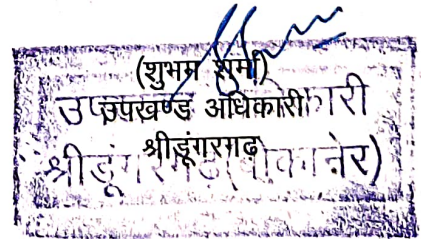 (शुभम शर्मा)
उपखण्ड अधिकारी
श्रीडूंगरगढ़
उपखण्ड अधिकारी
श्रीडूंगरगढ़ (बीकानेर)